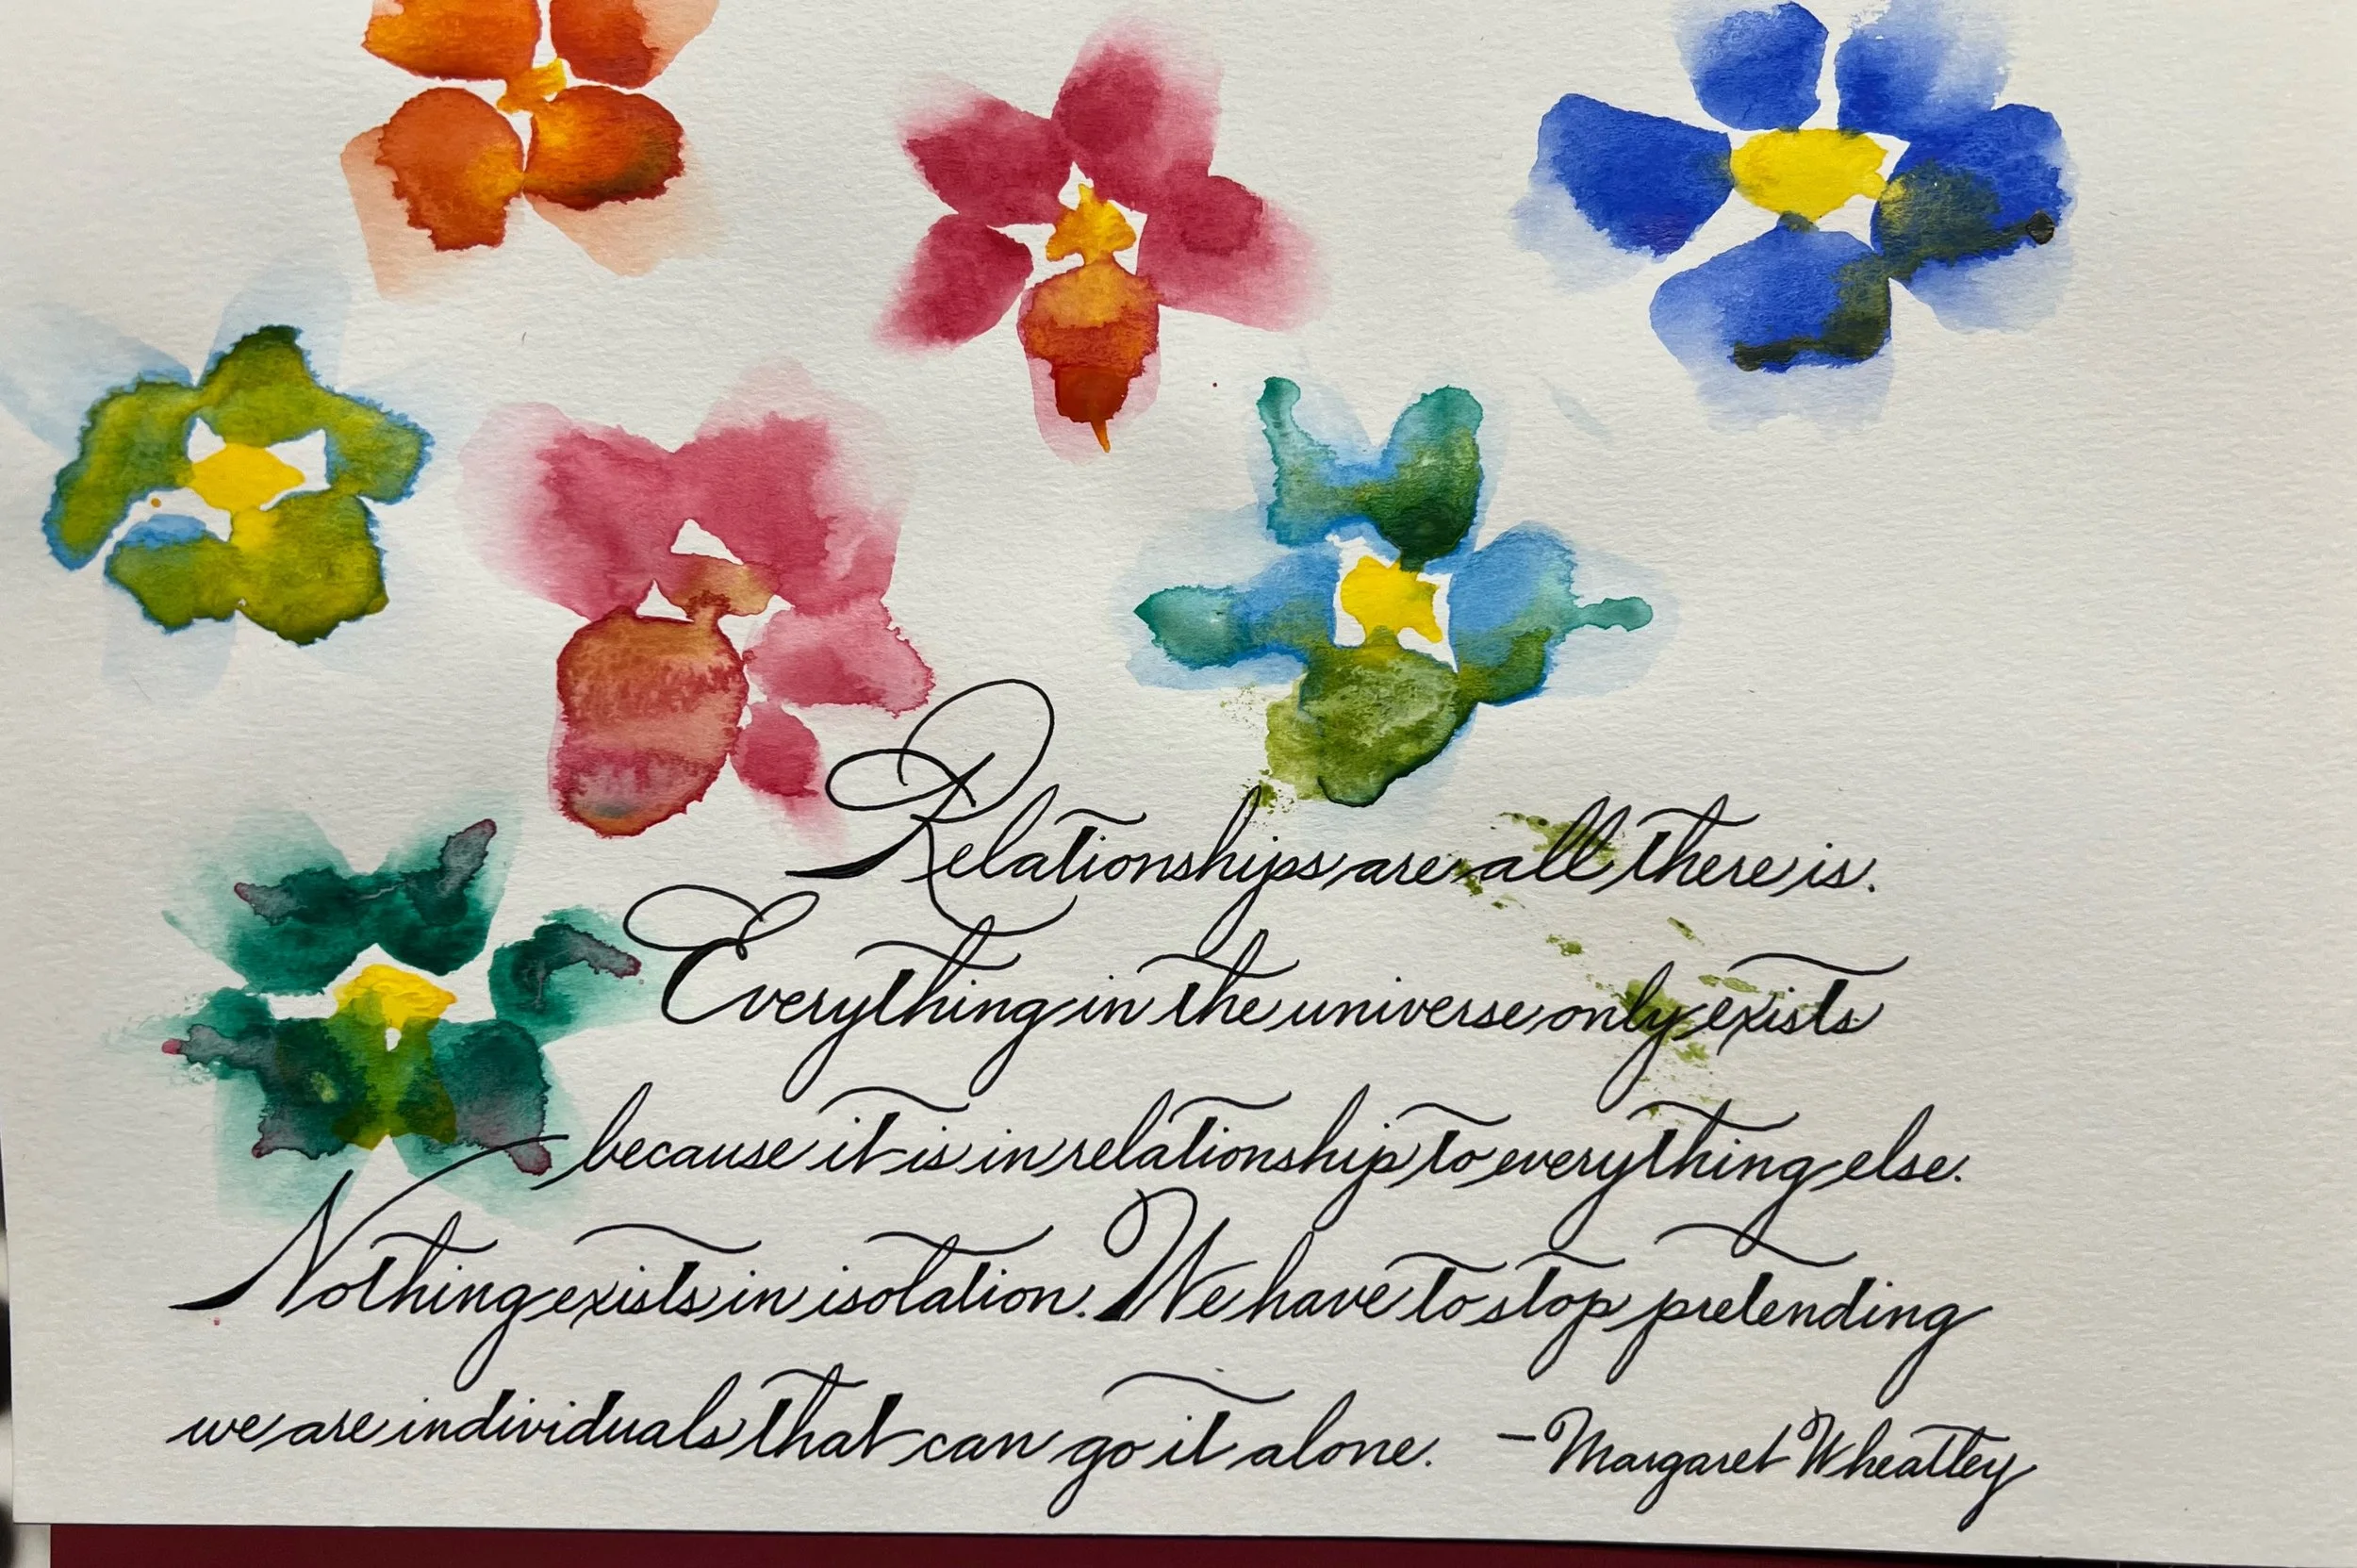 Relationships are all there is.
Everything in the universe only exists
because it is in relationship to everything else.
Nothing exists in isolation. We have to stop pretending
we are individuals that can go it alone. -Margaret Wheatley